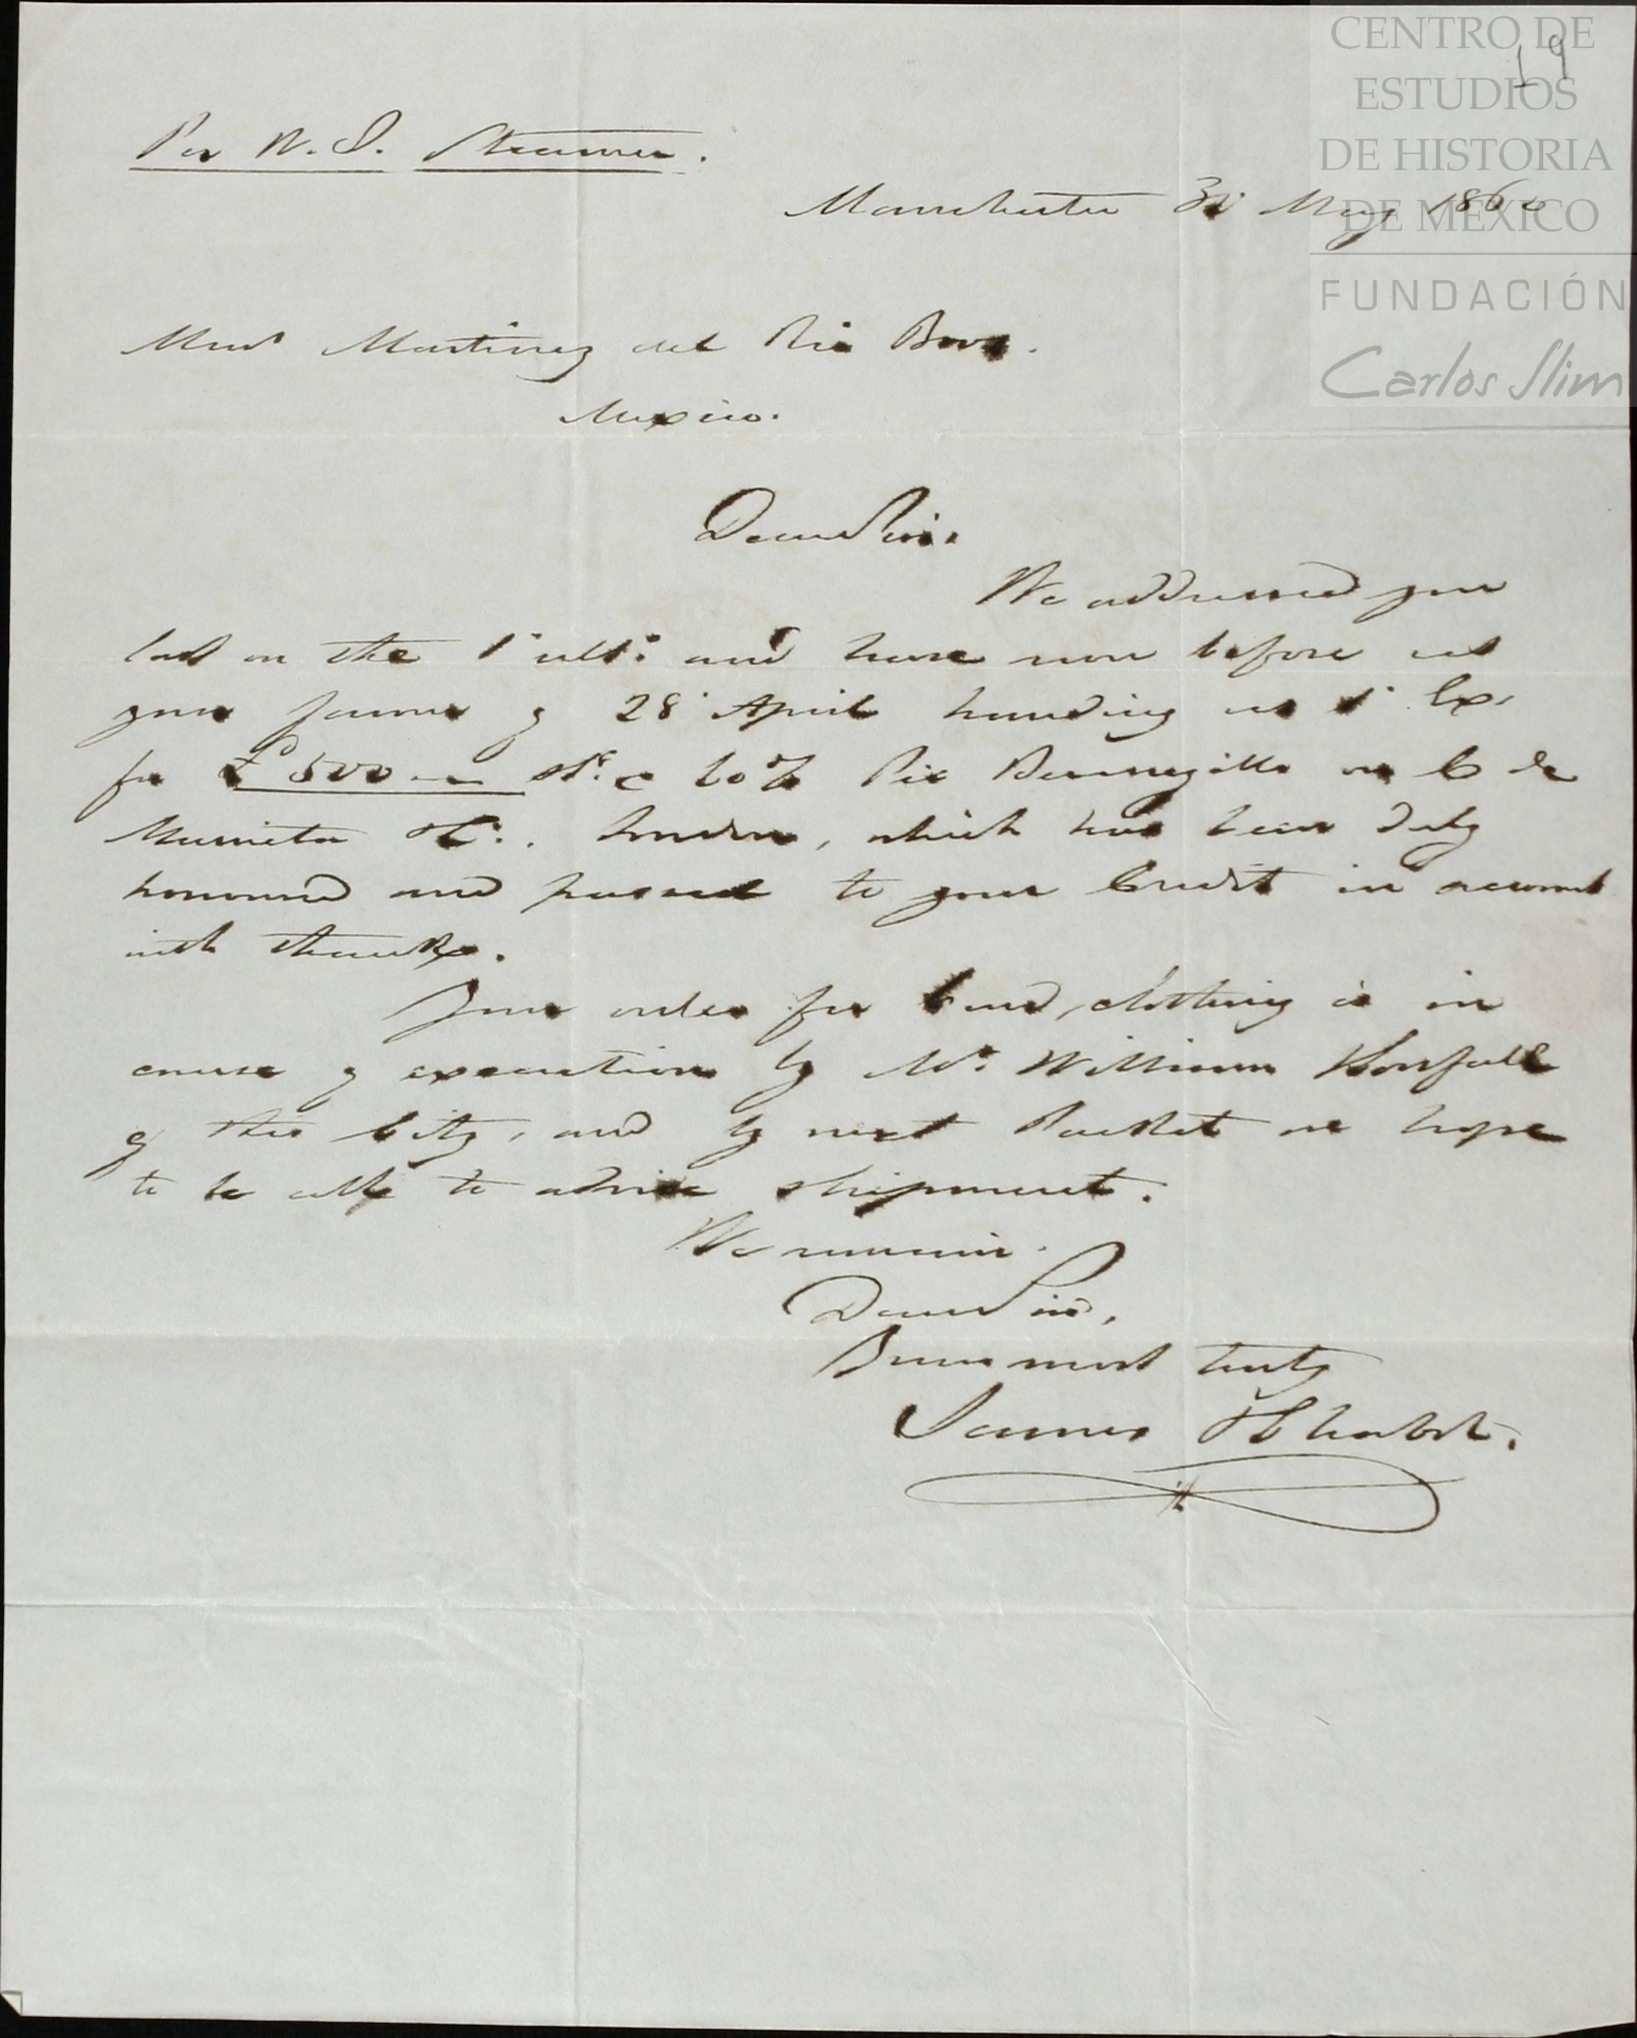 CENTRO DE
ESTUDIOS
DE HISTORIA
DE MÉXICO
FUNDACIÓN
Carlos Slim
19
Per W. I. Steamer.
Manchester 31 May 1860
Messrs Martinez del Rio Bros.
Mexico.
Dear Sirs.
We addressed you
last on the 1st ulto. and have now before us
your favour of 28 April handing us 1st Ex.
for £500 — Stg. @ 60 d/ Pio Bermejillo on C de
Murrieta & Co. London, which has been duly
honoured and passed to your Credit in account
with thanks.
Your order for Card clothing is in
course of execution by Mr. William Horsfall
of this City, and by next Packet we hope
to be able to advise shipment.
We remain.
Dear Sirs,
Yours most truly
James